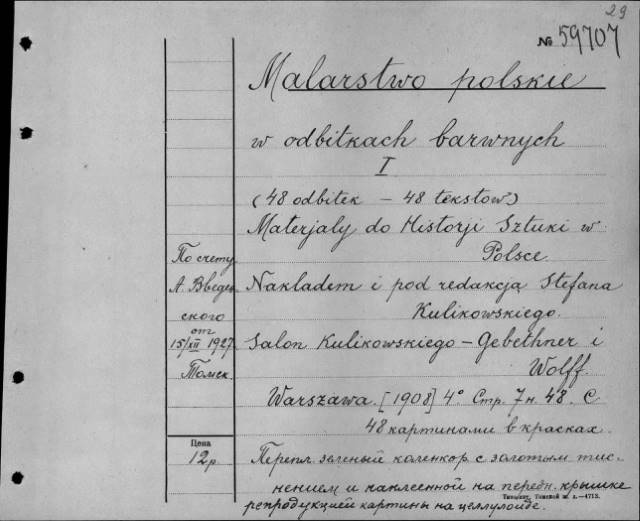 29
№ 59707
Malarstwo polskie
w odbitkach barwnych
I
(48 odbitek – 48 tekstow)
Materjaly do Historji Sztuki w
Polsce.
Nakladem i pod redakcja Stefana
Kulikowskiego.
Salon Kulikowskiego – Gebethner i
Wolff.
Warszawa. [1908] 4° Стр. 7 н. 48. С
48 картинами в красках.
По счету
А. Введен
ского
от
15/XII 1927
Томск.
Цена
12р
Перепл. зеленый коленкор. с золотым тис-
нением и наклеенной на передн. крышке
репродукцией картины на целлулоиде.
Типолит. Томской ж. д.–4713.